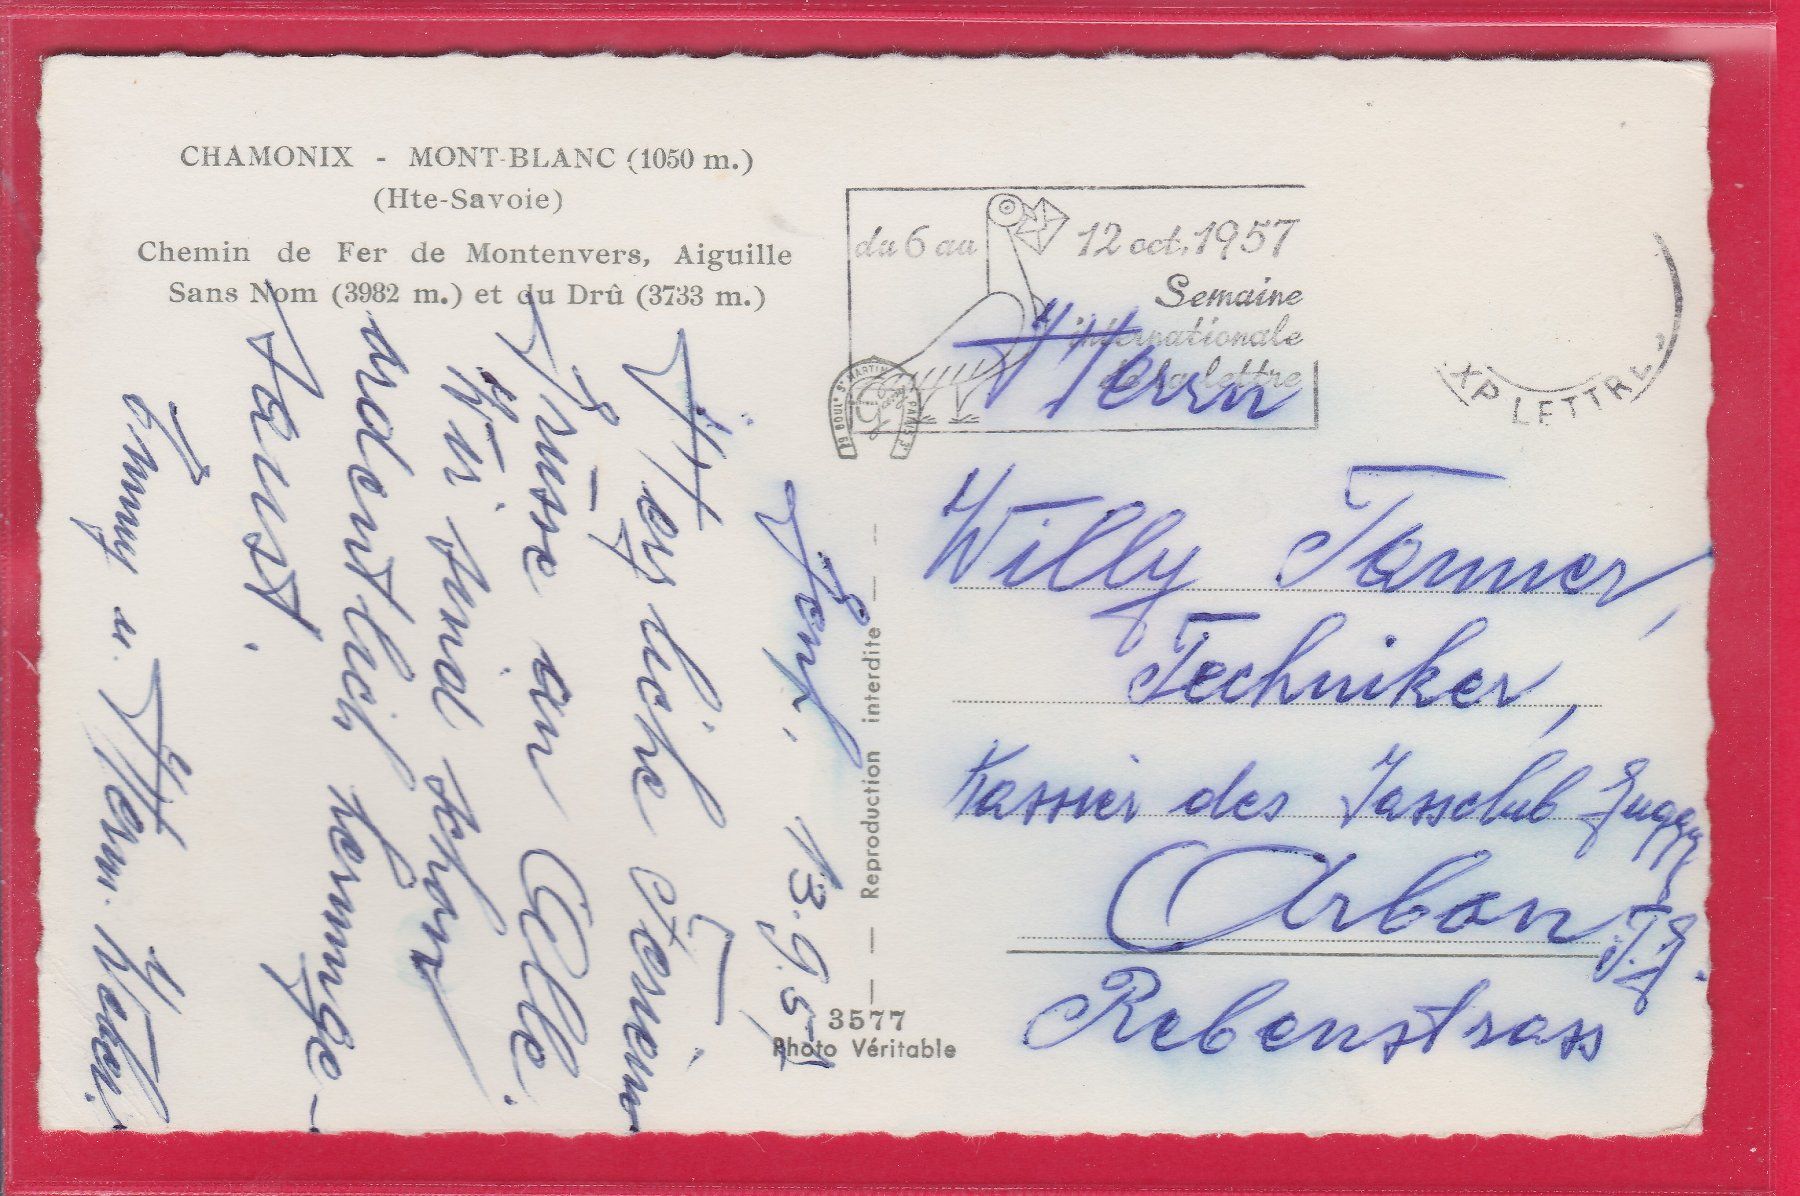 CHAMONIX - MONT-BLANC (1050 m.)
(Hte-Savoie)
Chemin de Fer de Montenvers, Aiguille
Sans Nom (3982 m.) et du Drû (3733 m.)
du 6 au 12 oct. 1957
Semaine
internationale
de la lettre
XP LETTRE
Genf, 13.9.57
Herzliche Ferien-
Grüsse an Alle.
Wir sind schon
ordentlich herumge-
saust.
Emmy u. Herm.
Herrn
Willy Tanner,
Techniker,
Kassier des Jassclub Guggy
Arbon T.G.
Rebenstrass
Reproduction interdite
3577
Photo Véritable
ST MARTIN
PARIS 3e